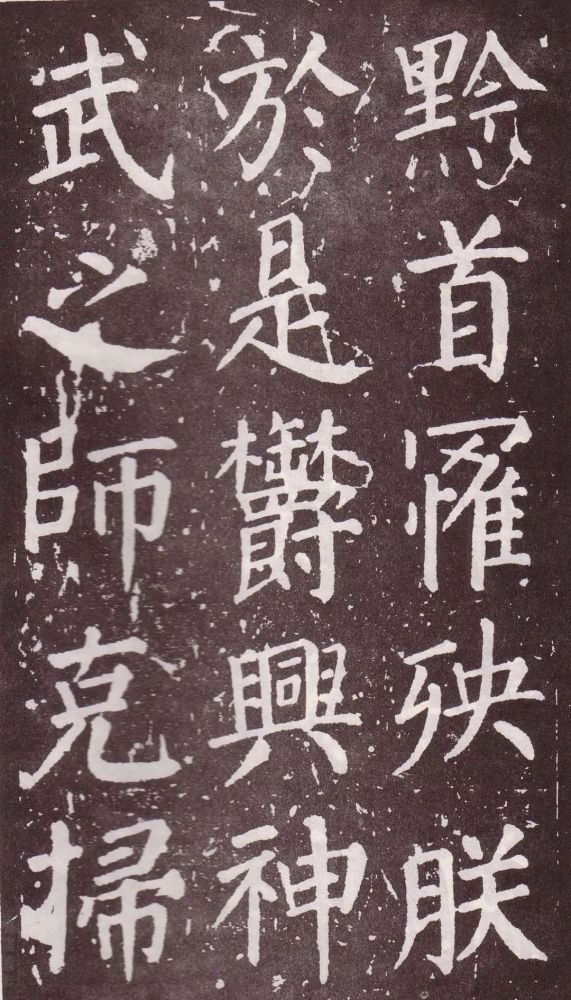 黔首罹殃朕
於是鬱興神
武之師克掃